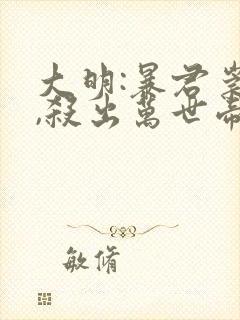 大明:暴君崇
,殺出萬世帝
敏脩